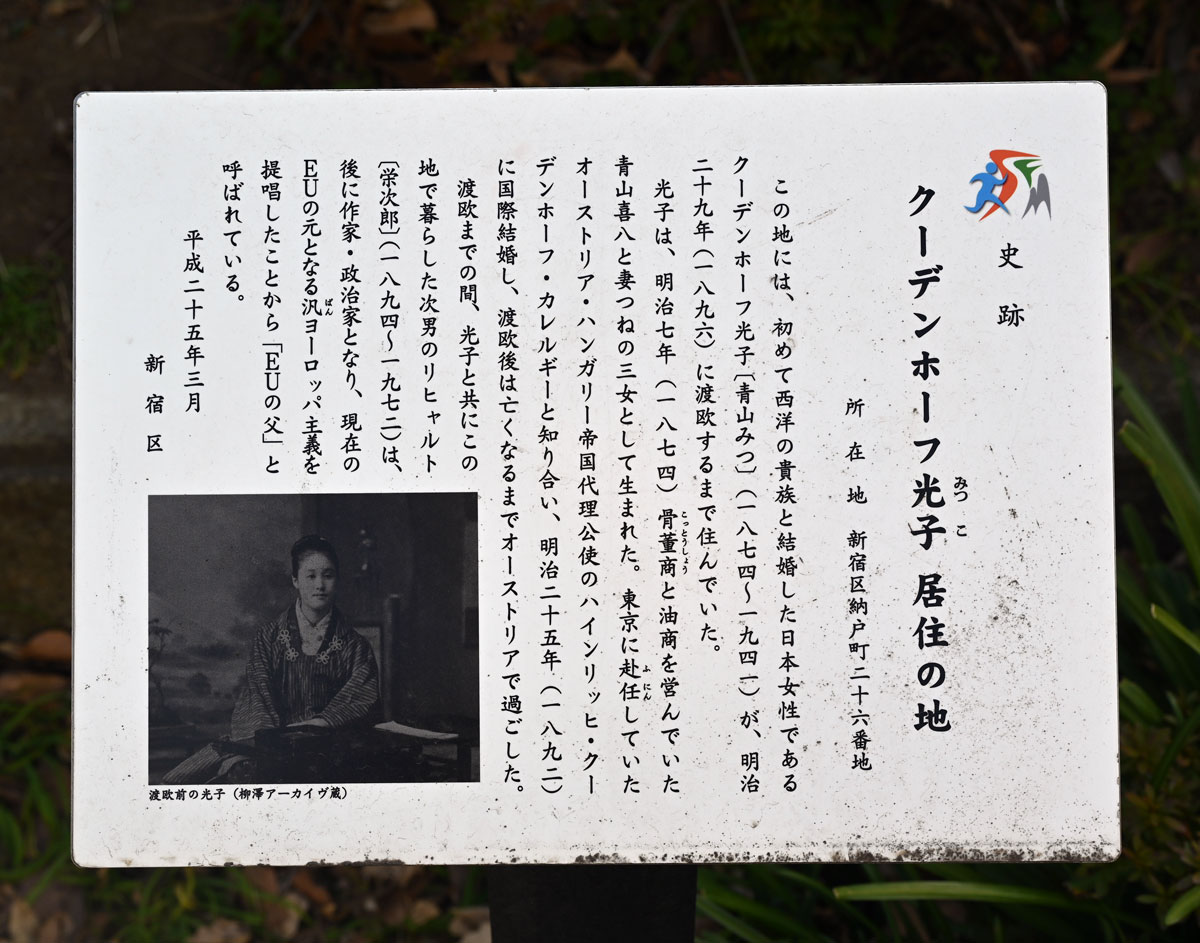 史跡
クーデンホーフ光子 居住の地
みつ こ
所在地 新宿区納戸町二十六番地
この地には、初めて西洋の貴族と結婚した日本女性である
クーデンホーフ光子〔青山みつ〕(一八七四〜一九四一)が、明治
二十九年(一八九六)に渡欧するまで住んでいた。
光子は、明治七年(一八七四)骨董商と油商を営んでいた
こっとうしょう
青山喜八と妻つねの三女として生まれた。東京に赴任していた
ふ にん
オーストリア・ハンガリー帝国代理公使のハインリッヒ・クー
デンホーフ・カレルギーと知り合い、明治二十五年(一八九二)
に国際結婚し、渡欧後は亡くなるまでオーストリアで過ごした。
渡欧までの間、光子と共にこの
地で暮らした次男のリヒャルト
〔栄次郎〕(一八九四〜一九七二)は、
後に作家・政治家となり、現在の
EUの元となる汎ヨーロッパ主義を
ぱん
提唱したことから「EUの父」と
呼ばれている。
平成二十五年三月
新宿区
渡欧前の光子(柳澤アーカイヴ蔵)